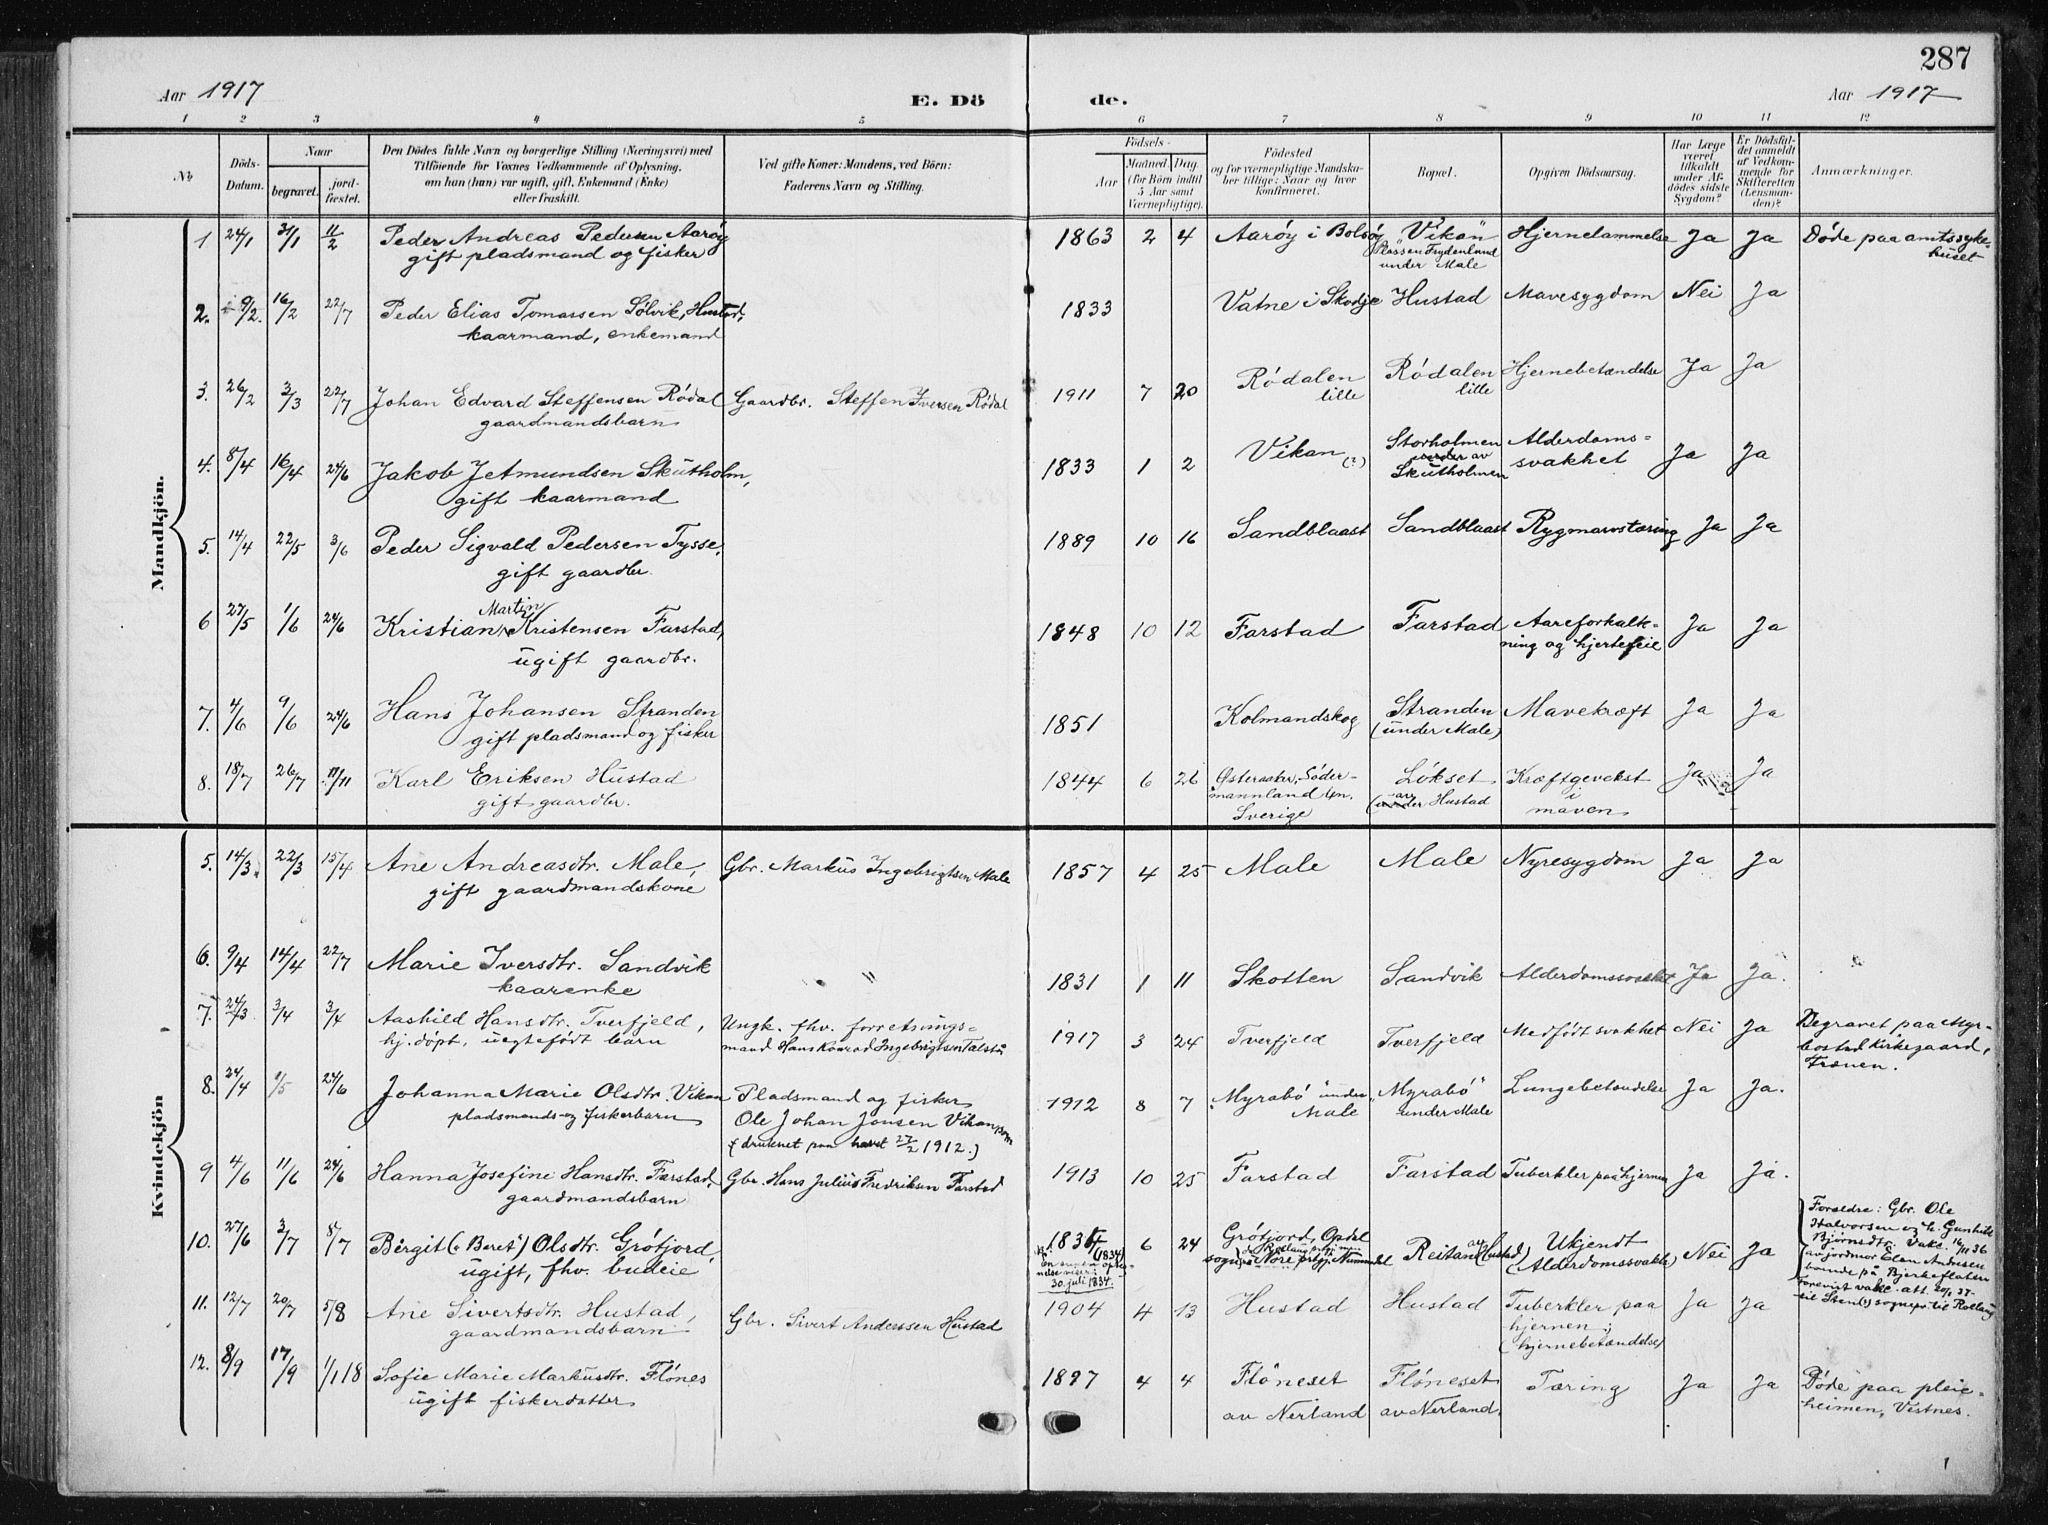 287
Aar 1917
E. Dö de.
Aar 1917
1 2 3 4 5 6 7 8 9 10 11 12
No
Döds-Datum.
Naar
begravet.
jord-fæstet.
Den Dödes fulde Navn og borgerlige Stilling (Næringsvei) med
Tilföiende for Voxnes Vedkommende af Oplysning,
om han (hun) var ugift, gift, Enkemand (Enke)
eller fraskilt.
Ved gifte Koner: Mandens, ved Börn:
Faderens Navn og Stilling.
Födsels-
Aar
Maaned. Dag.
(for Börn indtil
5 Aar samt
Værnepligtige).
Födested
og for værnepligtige Mandskaber tillige: Naar og hvor konfirmeret.
Bopæl.
Opgiven Dödsaarsag.
Har Læge været tilkaldt under Afdödes sidste Sygdom?
Er Dödsfaldet anmeldt af Vedkommende for Skifteretten (Lensmanden)?
Anmærkninger.
Mandkjön.
1 24/1 31/1 11/2 Peder Andreas Pedersen Aarøy 1863 2 4 Aarøy i Bolsøy "Vikan" Hjernelammelse Ja Ja Døde paa amtssyke-
gift pladsmand og fisker Plassen Frydenlund under Male huset
2. 9/2. 16/2 22/7 Peder Elias Tomassen Sølvik, Hustad, 1833 Vatne i Skodje Hustad Mavesygdom Nei Ja
kaarmand, enkemand
3. 26/2 3/3 22/7 Johan Edvard Steffensen Rødal Gaardbr. Steffen Iversen Rødal 1911 7 20 Rødalen Rødalen Hjernebetændelse Ja Ja
gaardmandsbarn lille lille
4. 8/4 16/4 24/6 Jakob Jetmundsen Skutholm, 1833 1 2 Vikan (?) Storholmen Alderdoms- Ja Ja
gift kaarmand under av Skutholmen svakhet
5. 14/4 22/5 3/6 Peder Sigvald Pedersen Tysse, 1889 10 16 Sandblaast Sandblaast Rygmarvstæring Ja Ja
gift gaardbr.
6 27/5 1/6 24/6 Kristian Martin Kristensen Farstad, 1848 10 12 Farstad Farstad Aareforkalk- Ja Ja
ugift gaardbr. ning og hjertefeil
7. 4/6 9/6 24/6 Hans Johansen Stranden 1851 Kolmandskog Stranden Mavekræft Ja Ja
gift pladsmand og fisker (under Male)
8. 18/7 26/7 11/11 Karl Eriksen Hustad 1844 6 26 Østeraaker, Söder- Løkset Kræftgevekst Ja Ja
gift gaardbr. mannland län. (under av Hustad i
Sverige maven
Kvindekjön
5. 14/3. 22/3 15/4 Ane Andreasdtr. Male, Gbr. Markus Ingebrigtsen Male 1857 4 25 Male Male Nyresygdom Ja Ja
gift gaardmandskone
6. 9/4 14/4 22/7 Marie Iversdtr. Sandvik " 1831 1 11 Skotten Sandvik Alderdomssvakhet Ja Ja.
kaarenke
7. 24/3 3/4 3/4 Aashild Hansdtr. Tverfjeld, Ungk. fhv. forretnings- 1917 3 24 Tverfjeld Tverfjeld Medfødt svakhet Nei Ja Begravet paa Myr-
hj.døpt, uegtefødt barn mand Hans Konrad Ingebrigtsen Talstu bostad kirkegaard,
Frænen.
8. 24/4 1/5 24/6 Johanna Marie Olsdtr. Vikan Pladsmand og fisker 1912 8 7 "Myrabø" under "Myrabø" Lungebetændelse Ja Ja.
pladsmands- og fiskerbarn Ole Johan Jonsen Vikan, som Male under Male
(druknet paa havet 27/2 1912.)
9 4/6 11/6 24/6 Hanna Josefine Hansdtr. Farstad, Gbr. Hans Julius Fredriksen Farstad 1913 10 25 Farstad Farstad Tuberkler paa hjernen Ja Ja.
gaardmandsbarn
10. 27/6 3/7 8/7 Birgit (" Beret") Olsdtr. Grøtjord, 1834 6 24 Grøtjord, Opdal Reitan av (Hustad) Ukjendt Nei Ja
ugift, fhv. budeie (1834) En senere optegnelse viser: 30 juli 1834. sogn Nore Numedal (Alderdomssvakh.)
Forældre: Gbr. Ole
Halvorsen og h. Gunhild
Bjørnsdtr. Vakc. 16/11 36
av jordmor Elen Andresen
boende på Bjerkeflaten
11. 12/7 20/7 5/8 Ane Sivertsdtr. Hustad, Gbr. Sivert Anderssen Hustad 1904 4 13 Hustad Hustad Tuberkler paa Ja Ja
gaardmandsbarn hjernen;
(hjernebetændelse)
12. 8/9 17/9 1/1 18 Sofie Marie Markusdtr. Flønes 1897 4 4 Fløneset Fløneset Tæring Ja Ja Døde paa pleie-
ugift fiskerdatter av Nerland av Nerland. heimen, Vestnes.